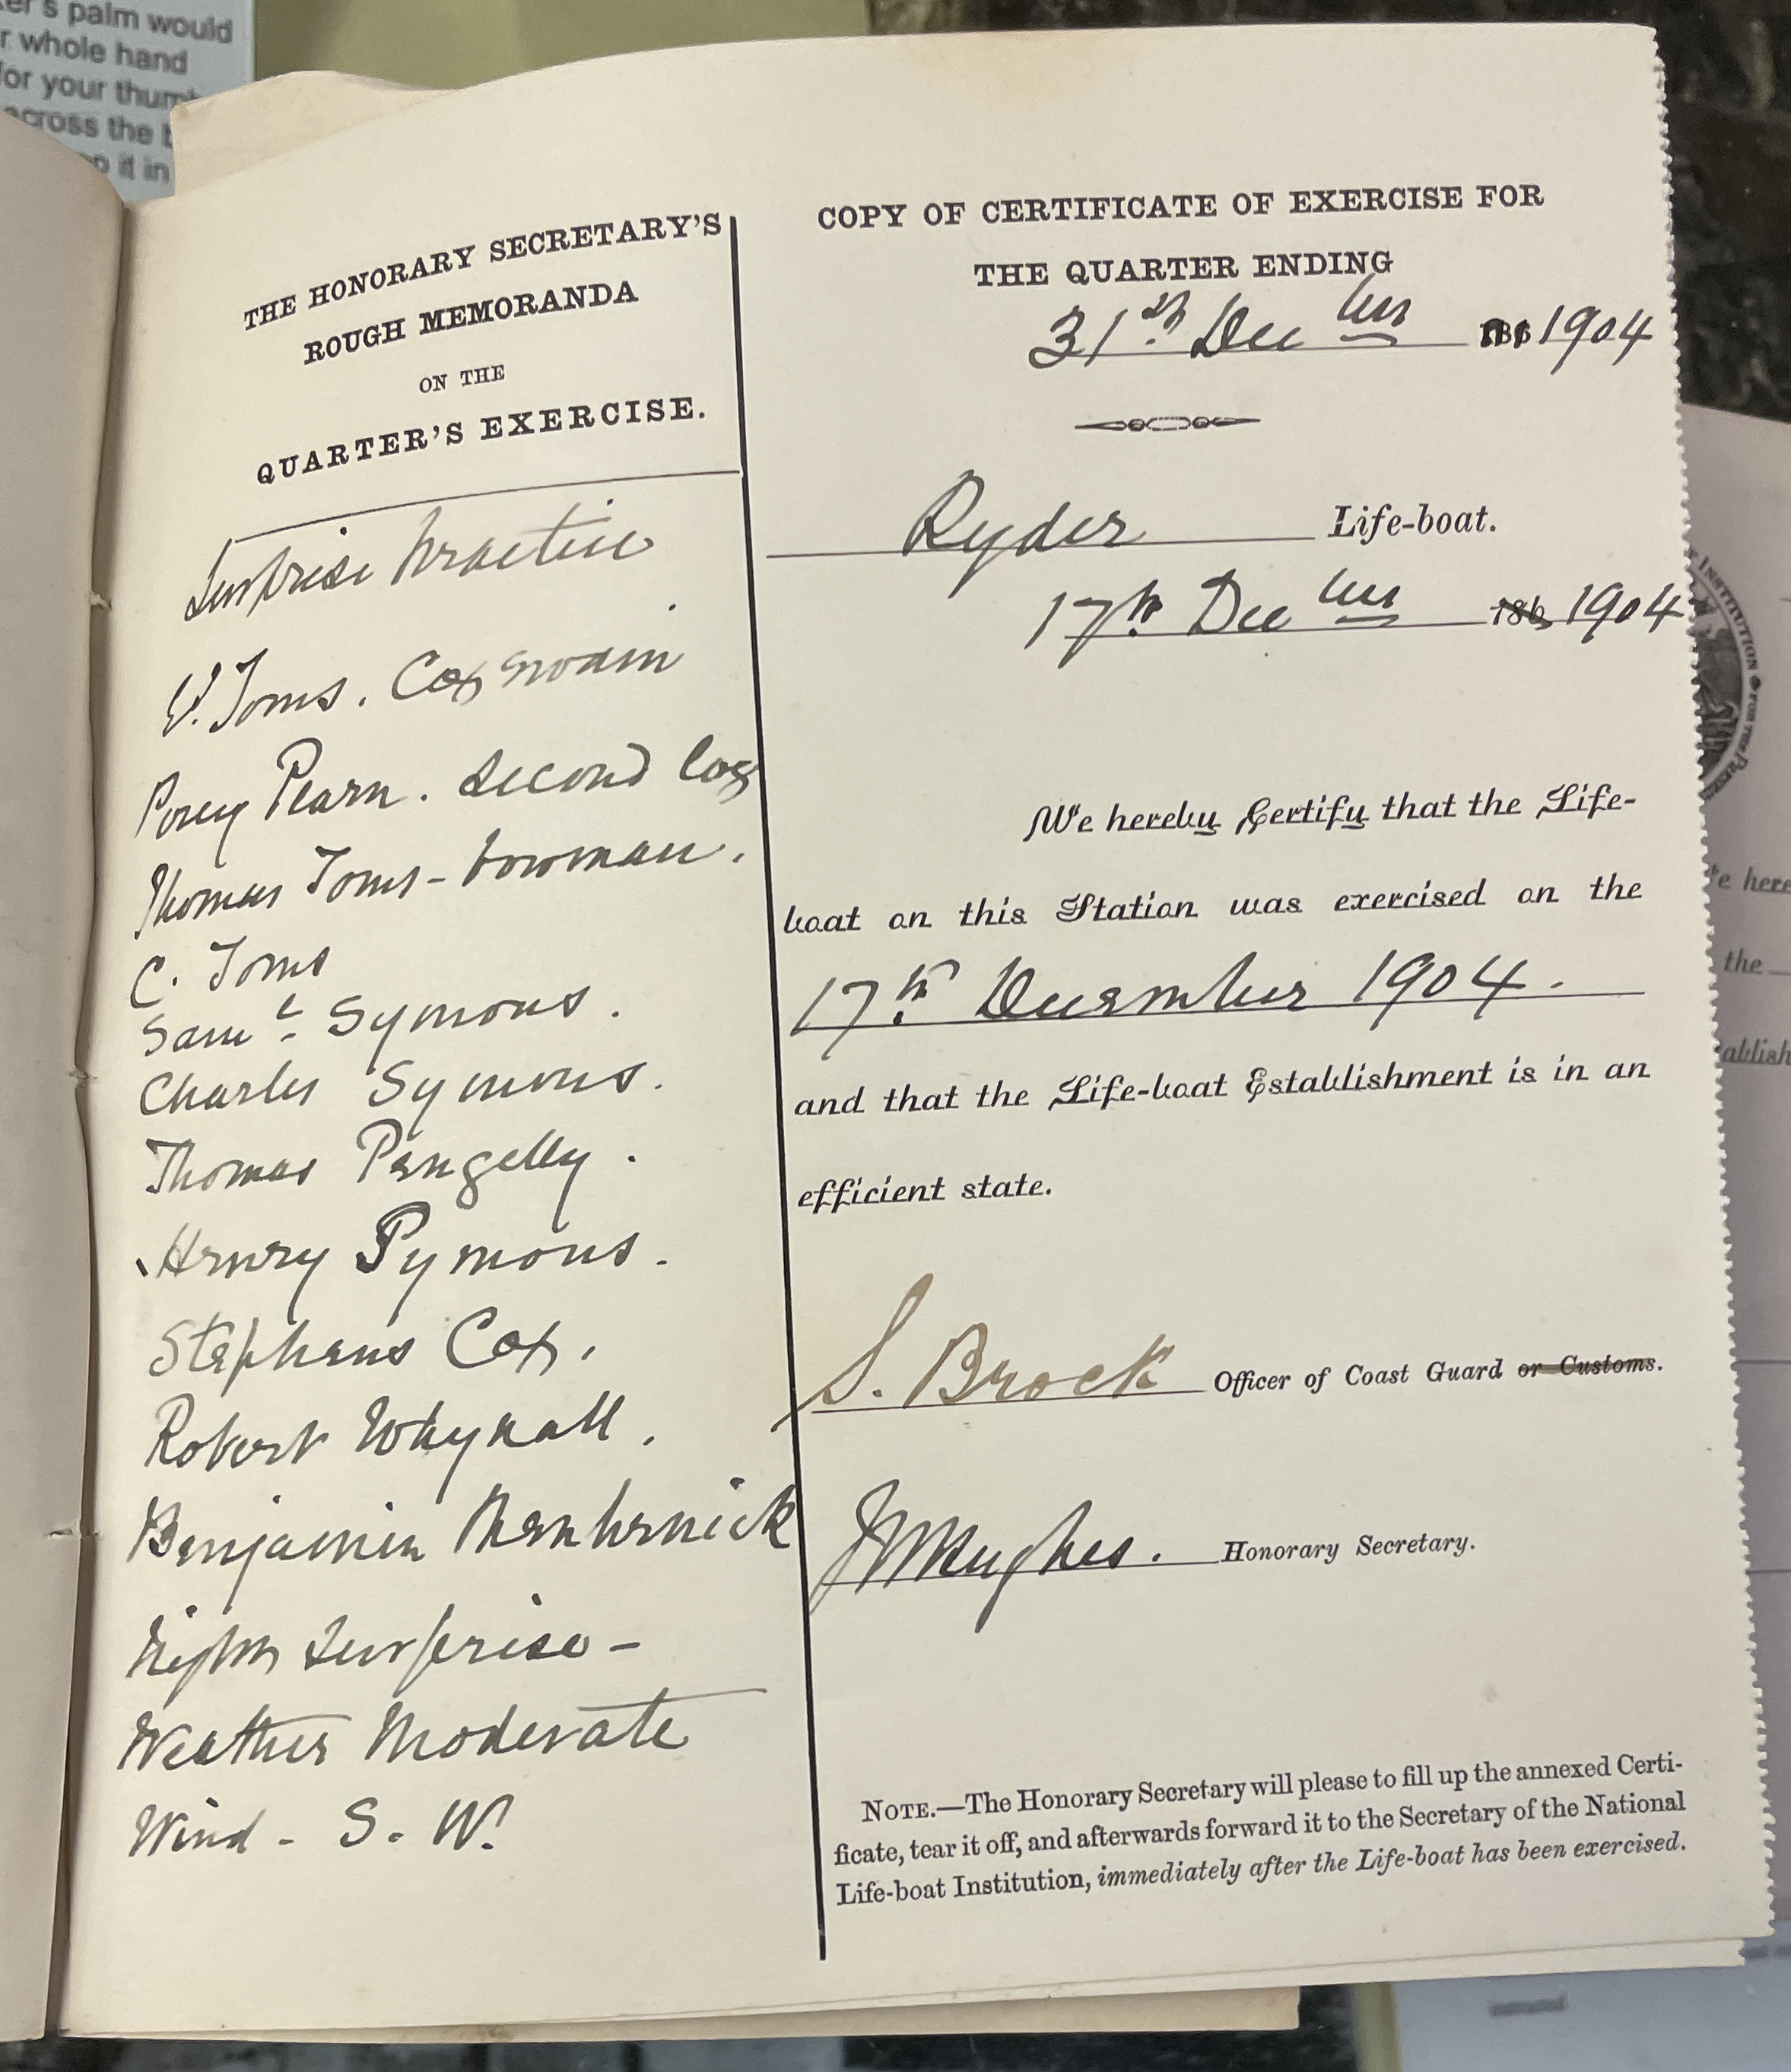 er's palm would
r whole hand
for your thumb
across the b
p it in
THE HONORARY SECRETARY'S
ROUGH MEMORANDA
ON THE
QUARTER'S EXERCISE.
Surprise Practice
W. Toms. Coxswain
Percy Pearn. Second Cox
Thomas Toms - bowman.
C. Toms
Saml. Symons.
Charles Symons.
Thomas Pengelly.
Henry Symons.
Stephens Cox.
Robert Whynall.
Benjamin Menhenick
Night Surprise -
Weather Moderate
Wind - S. W.
COPY OF CERTIFICATE OF EXERCISE FOR
THE QUARTER ENDING
31st December 186 1904
Ryder Life-boat.
17th December 186 1904
We hereby Certify that the Life-
boat on this Station was exercised on the
17th December 1904.
and that the Life-boat Establishment is in an
efficient state.
S. Brock Officer of Coast Guard or Customs.
Hughes. Honorary Secretary.
NOTE.—The Honorary Secretary will please to fill up the annexed Certi-
ficate, tear it off, and afterwards forward it to the Secretary of the National
Life-boat Institution, immediately after the Life-boat has been exercised.
INSTITUTION FOR THE
e here
the
ablish